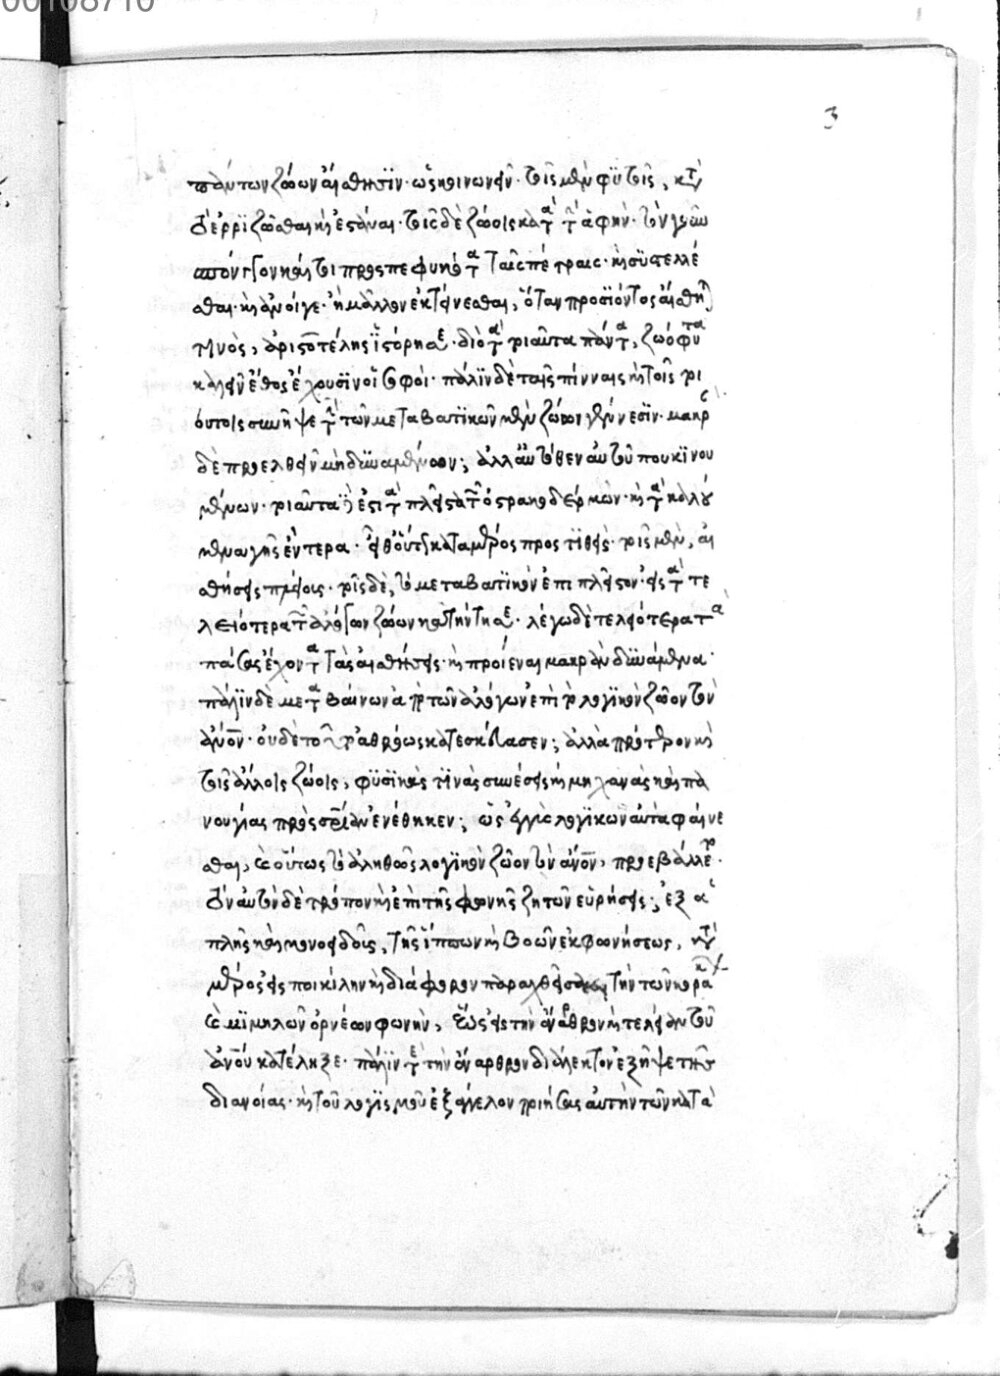 00108710
3
πάντων ζώων αἴσθησιν· ὡς κοινωνεῖν· τοῖς μὲν φυτοῖς, κατὰ τὸ
ἐρριζῶσθαι καὶ ἑστάναι· τοῖς δὲ ζώοις κατὰ τὴν ἁφήν· τὸν γοῦν
σπόγγον καίτοι προσπεφυκότα ταῖς πέτραις· καὶ συστέλλε
σθαι· καὶ ἀνοίγε· ἢ μᾶλλον ἐκτείνεσθαι, ὅταν προσιόντος αἴσθη
τινὸς, ἀριστοτέλης ἱστόρησε· διὸ τὰ τοιαῦτα πάντα, ζωόφυτα
καλεῖν ἔθος ἔχουσιν οἱ σοφοί· πάλιν δὲ ταῖς πίνναις καὶ τοῖς τοι
ούτοις συνῆψε τὴν τῶν μεταβατικῶν μὲν ζώων γένεσιν· μακρὰν
δὲ προελθεῖν μὴ δυναμένων· ἀλλ' αὐτόθεν αὐτοῦ που κινου
μένων· τοιαῦτα δέ ἐστι τὰ πλεῖστα τῶν ὀστρακοδέρμων· καὶ τὰ καλού
μενα γῆς ἔντερα· εἶθ' οὕτως κατὰ μέρος προστιθεὶς· τοῖς μὲν, αἰ
σθήσεις πλείοις· τοῖς δὲ, τὸ μεταβατικὸν ἐπὶ πλεῖστον· εἰς τὰ τε
λειότερα τῶν ἀλόγων ζώων κατήντησε· λέγω δὲ τελειότερα τὰ
πάσας ἔχοντα τὰς αἰσθήσεις· καὶ προϊέναι μακρὰν δυνάμενα·
πάλιν δὲ μεταβαίνων ἀπὸ τῶν ἀλόγων ἐπὶ τὸ λογικὸν ζῶον τὸν
ἄνον· οὐδὲ τοῦτο ἀθρόως κατεσκεύασεν· ἀλλὰ πρότερον καὶ
τοῖς ἄλλοις ζώοις, φυσικάς τινας συνέσεις καὶ μηχανὰς καὶ πα
νουργίας πρὸς σωτηρίαν ἐνέθηκεν· ὡς ἐγγὺς λογικῶν αὐτὰ φαίνε
σθαι, καὶ οὕτως τὸ ἀληθῶς λογικὸν ζῶον τὸν ἄνον, προεβάλλετο·
τὸν αὐτὸν δὲ τρόπον καὶ ἐπὶ τῆς φωνῆς ζητῶν εὑρήσεις· ἐξ ἁ
πλῆς καὶ μονοειδοῦς, τῆς ἵππων καὶ βοῶν ἐκφωνήσεως, κατὰ
μέρος εἰς ποικίλην καὶ διάφορον παραχθεῖσαν τὴν τῶν κοράκων
καὶ μιμηλῶν ὀρνέων φωνὴν, ἕως εἰς τὴν ἔναρθρον καὶ τελείαν τοῦ
ἀνοῦ κατέληξε· πάλιν τε τὴν ἔναρθρον διάλεκτον ἐξῆψε τῆς
διανοίας· καὶ τοῦ λογισμοῦ ἐξάγγελον ποιήσας αὐτὴν τῶν κατὰ